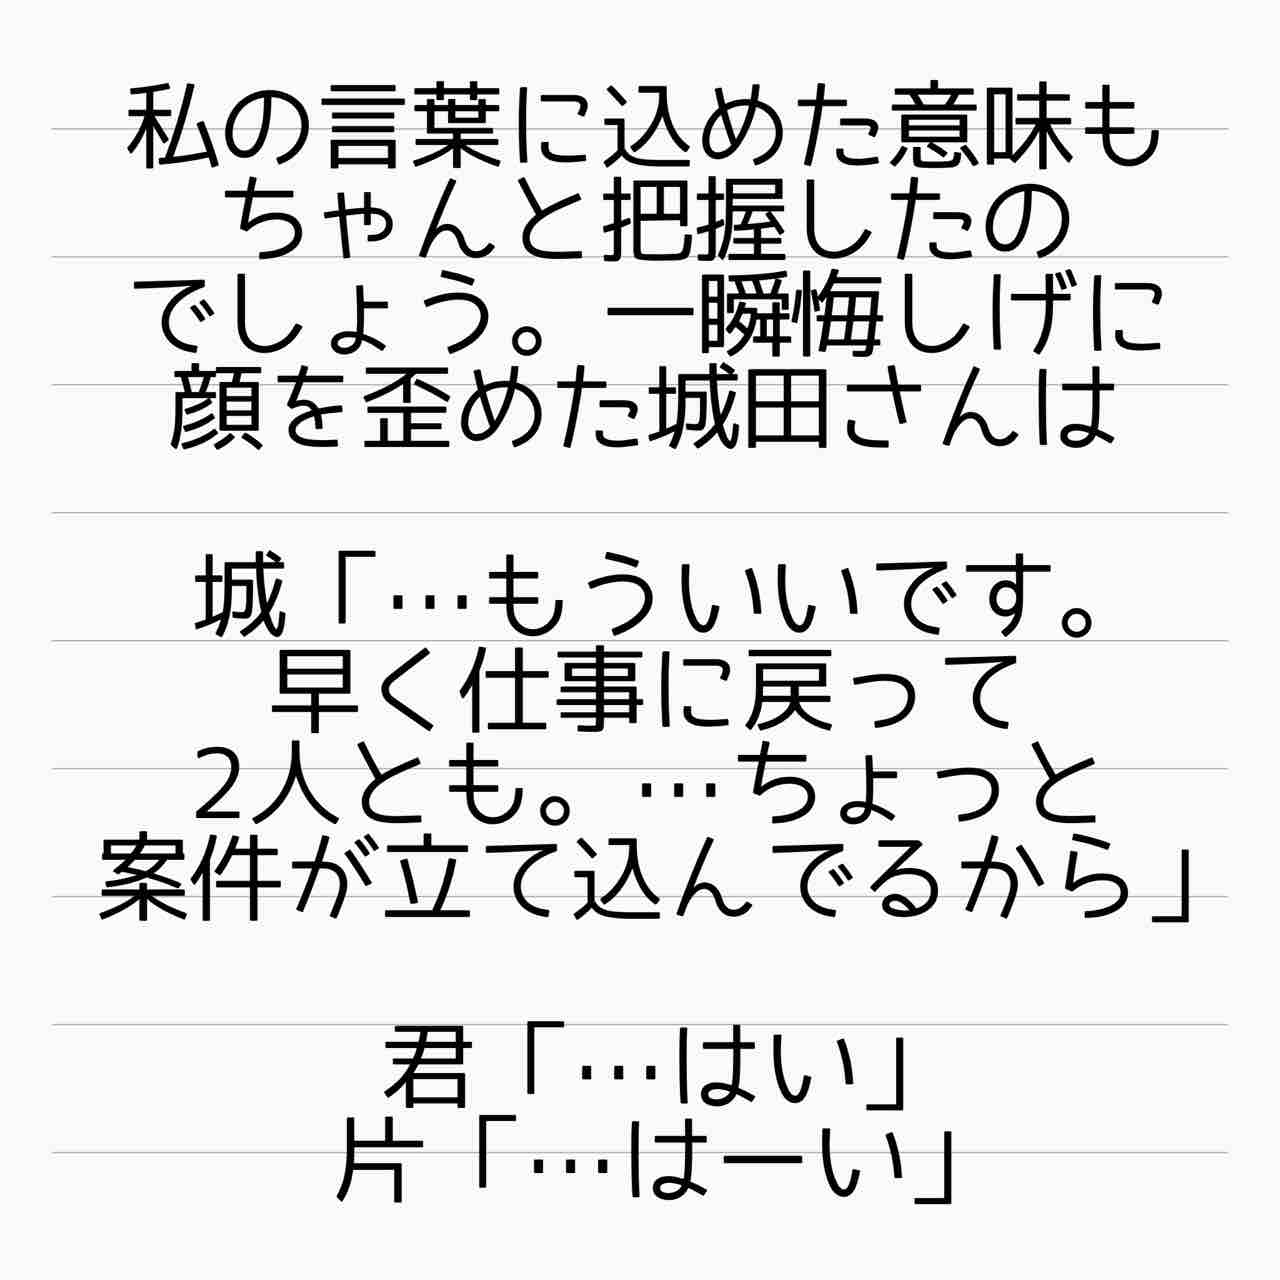 私の言葉に込めた意味も
ちゃんと把握したの
でしょう。一瞬悔しげに
顔を歪めた城田さんは
城「…もういいです。
早く仕事に戻って
2人とも。…ちょっと
案件が立て込んでるから」
君「…はい」
片「…はーい」